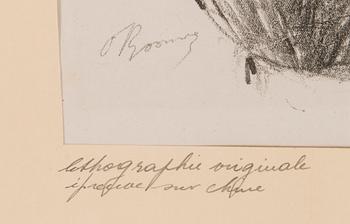 lithographie originale
épreuve sur chine